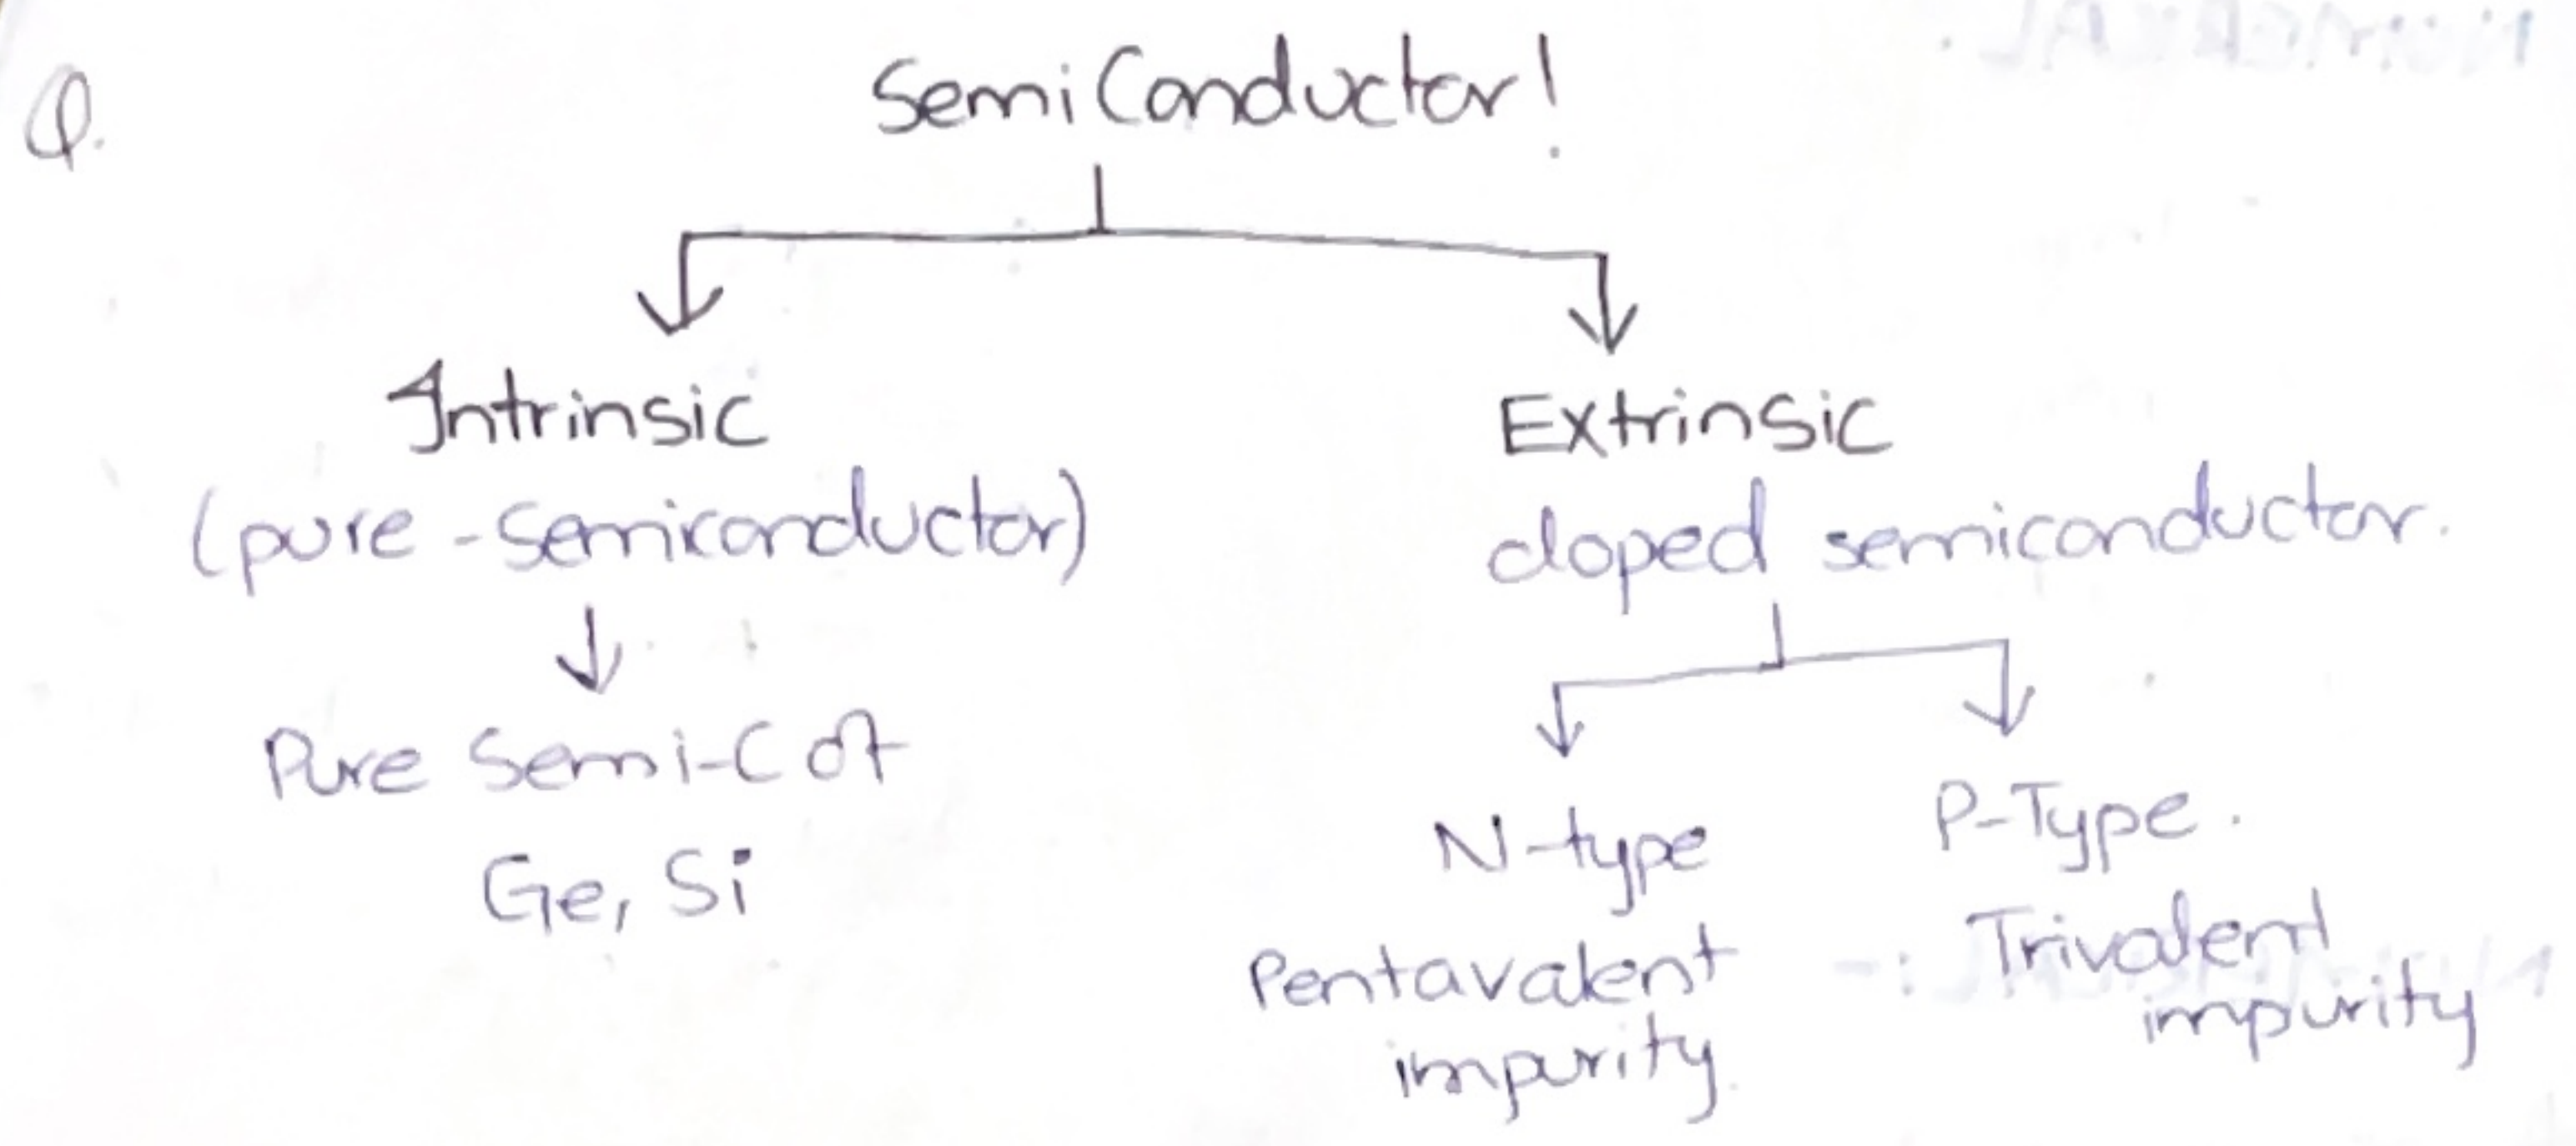 Q.
Semi Conductor!
Intrinsic
(pure - semiconductor)
Pure Semi-C of
Ge, Si
Extrinsic
doped semiconductor.
N-type
Pentavalent
impurity.
P-Type.
Trivalent
impurity